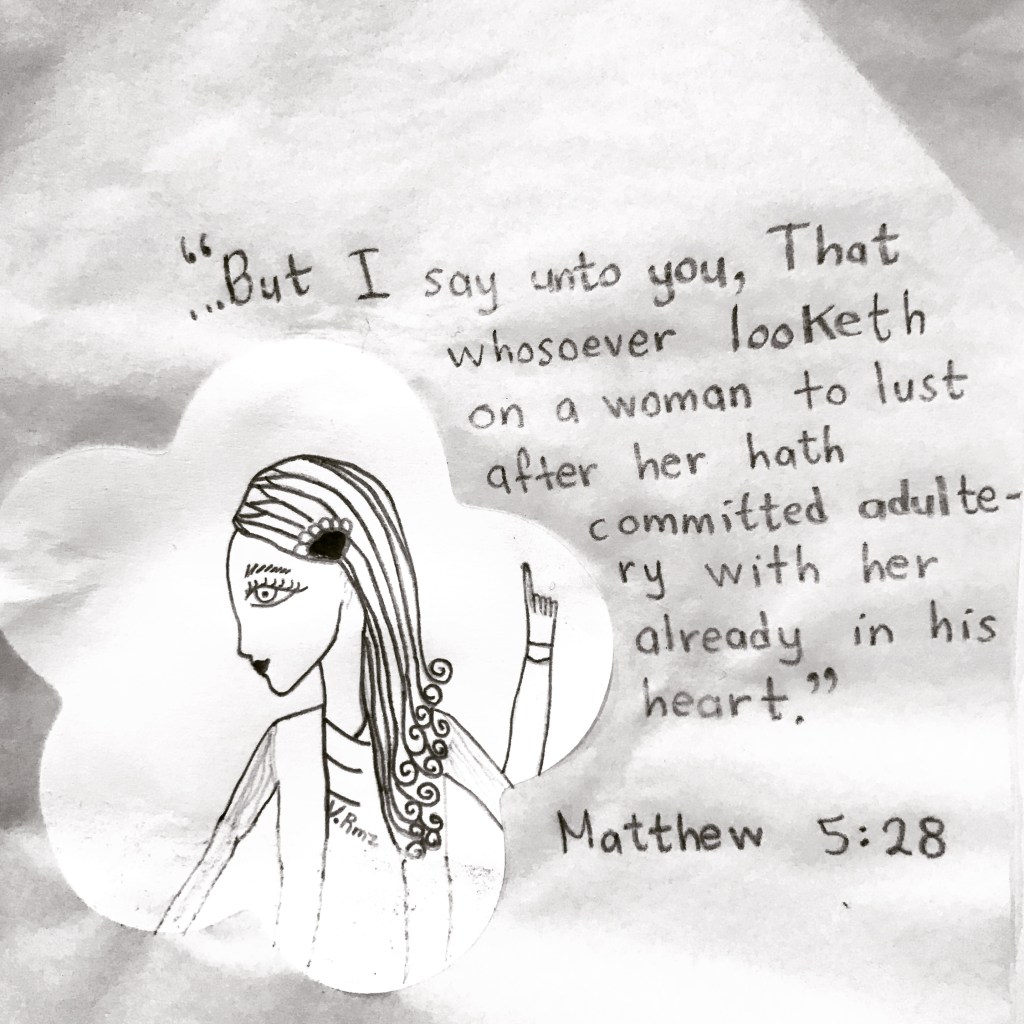 “...But I say unto you, That
whosoever looketh
on a woman to lust
after her hath
committed adulte-
ry with her
already in his
heart.”
Matthew 5:28
V.Rmz